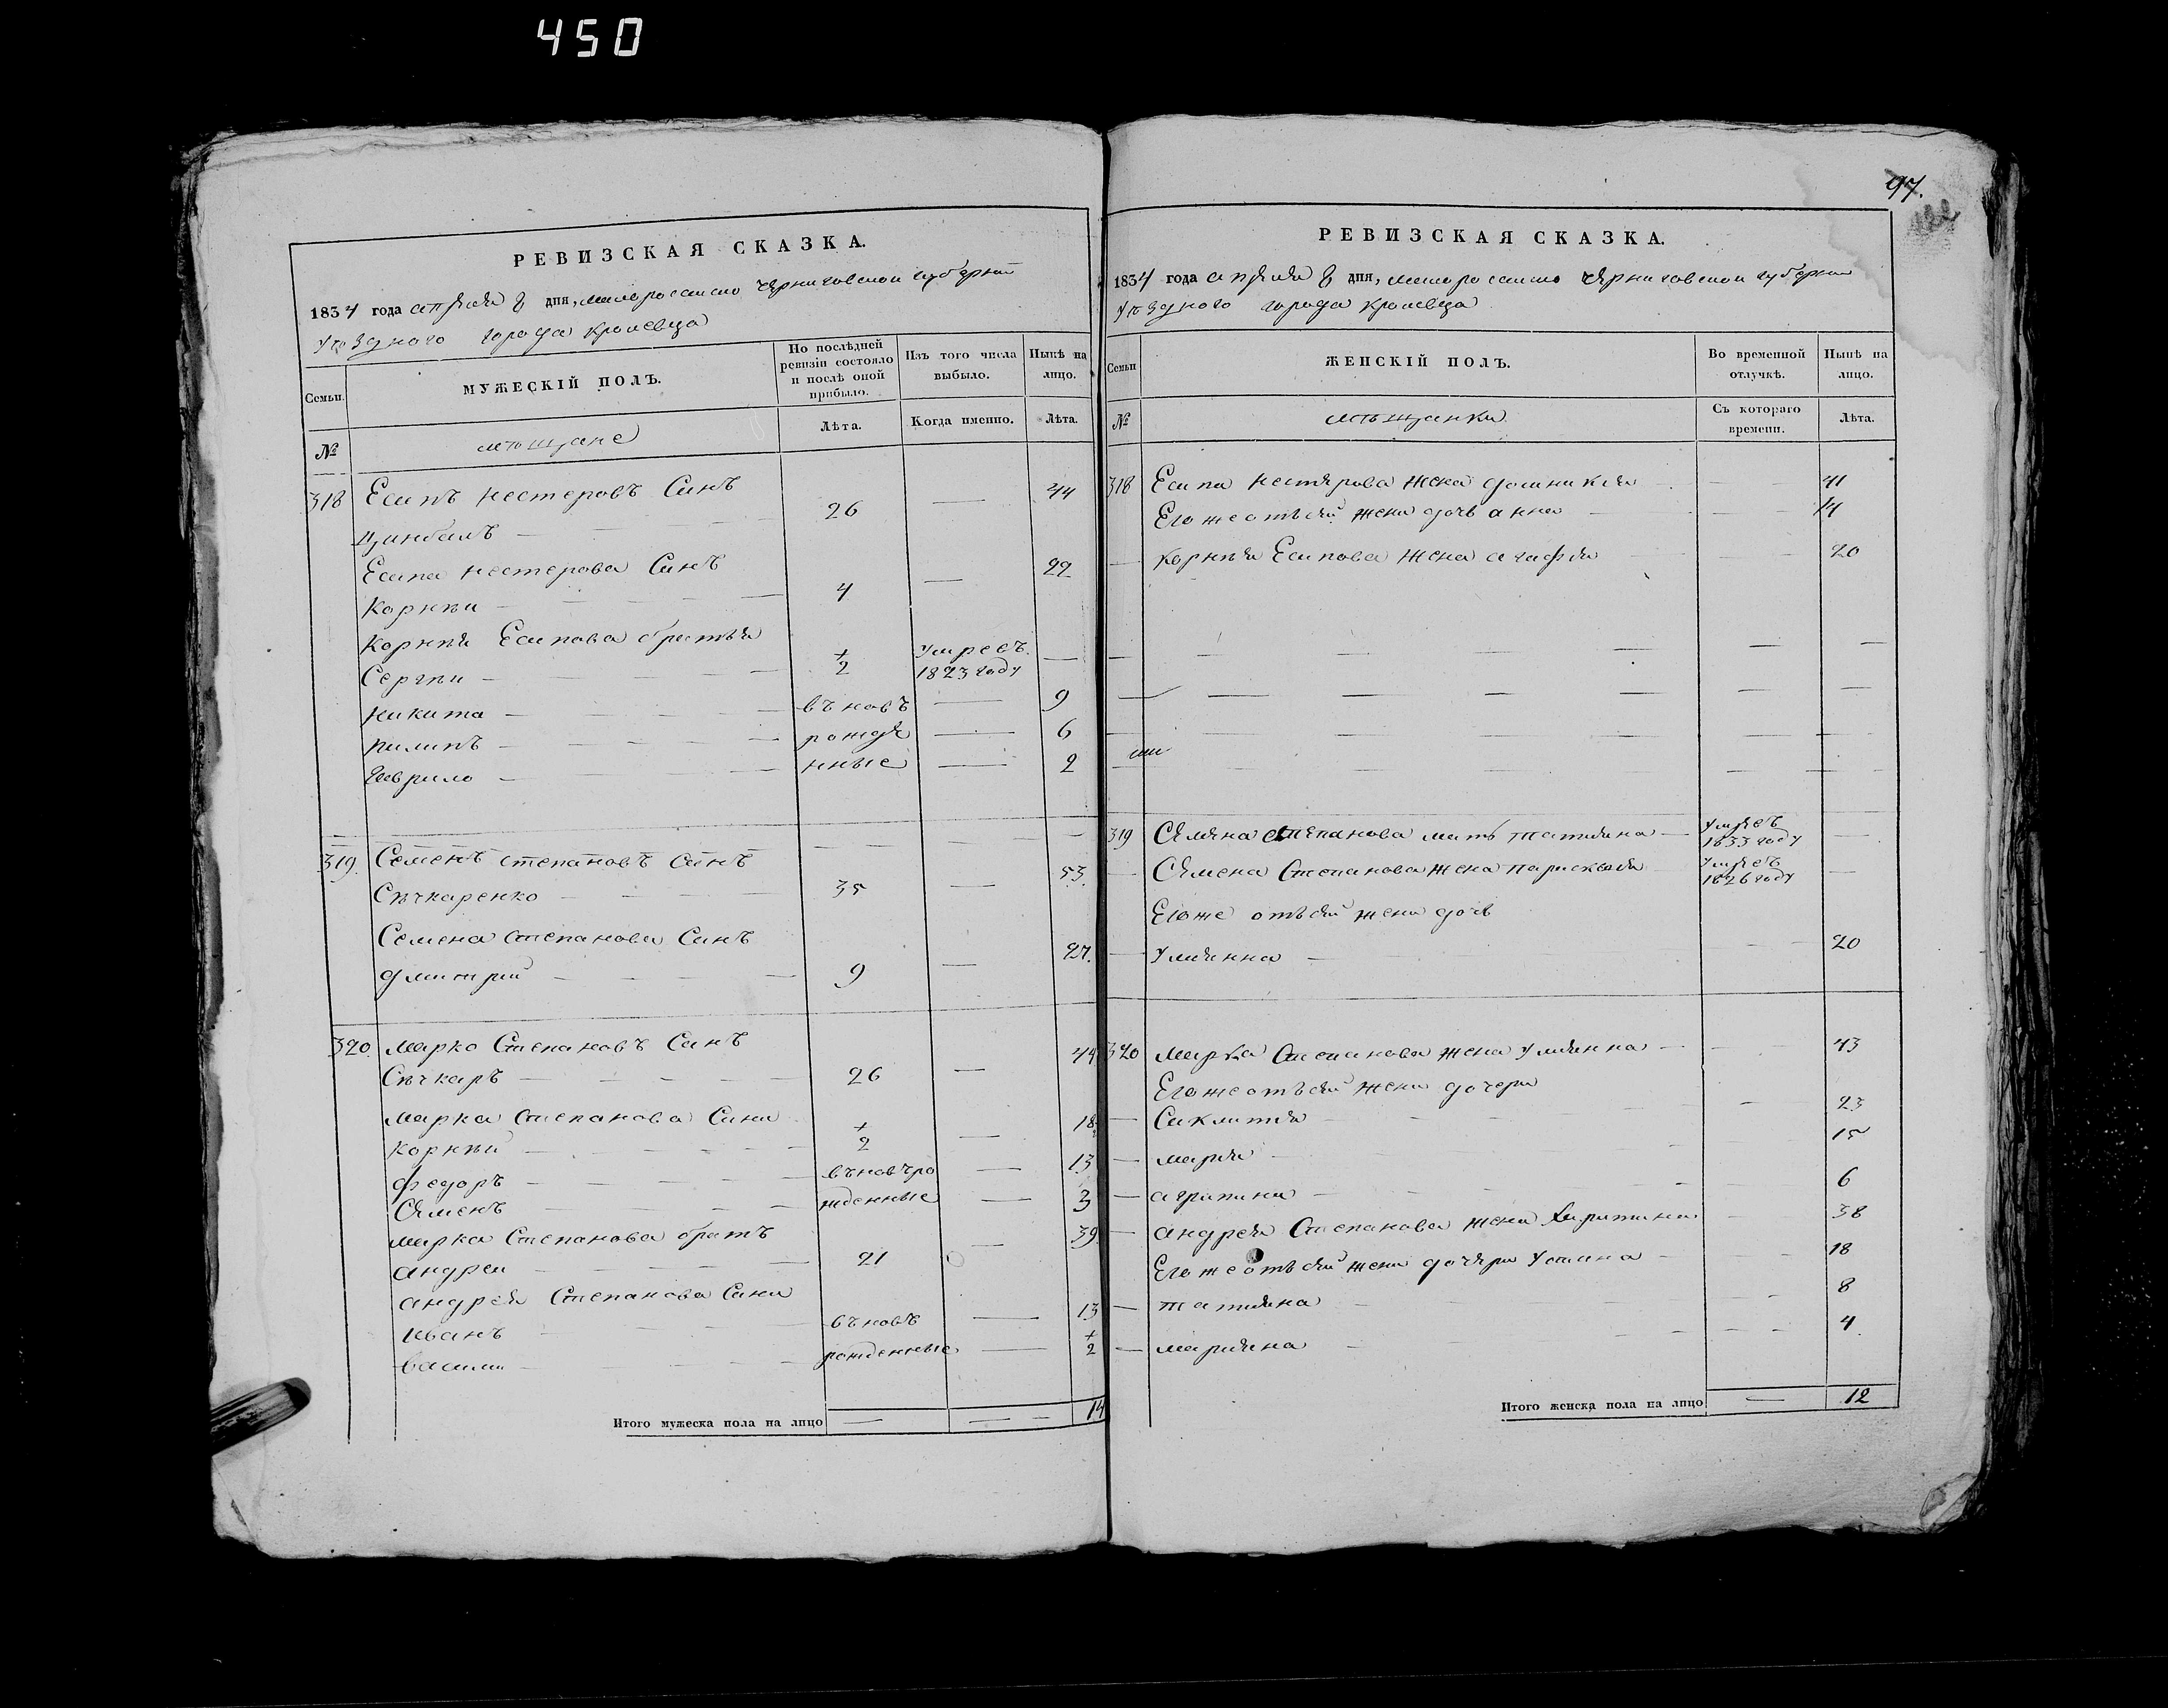 450
РЕВИЗСКАЯ СКАЗКА.
1834 года апреля 8 дня, малоросиско черниговской губернии
уѣздного города кролевца
Семьи.
МУЖЕСКІЙ ПОЛЪ.
По послѣдней ревизіи состояло и послѣ оной прибыло.
Изъ того числа выбыло.
Нынѣ на лицо.
№
мѣщане
Лѣта.
Когда именно.
Лѣта.
318 Есипъ нестеровъ Синъ
Цинбалъ 26 — 44
Есипа нестерова Синъ
Корнѣи 4 — 22
Корнѣя Есипова братья
Сергѣи ½ умреъ. 1823 году —
никита — въновъ — 9
пилипъ — рожде — 6
Гаврило — нные — 2
319. Семенъ степановъ Синъ
Сѣчкаренко 35 — 53.
Семена степанова Синъ
дмитрий 9 — 27.
320. марко Степановъ Синъ
Сѣчкаръ — 26 — 44
марка Степанова Сини
Корнѣй ½ — 18½
федоръ — въновъро — 13
Семенъ — жденные — 3
марка Степанова братъ
андреи — 21 — 39.
андрея Степанова Сини
иванъ въновъ — 13
василии рожденные — ½
Итого мужеска пола на лицо — — — 14
97.
РЕВИЗСКАЯ СКАЗКА.
1834 года апреля 8 дня, малоросиско черниговской губернии
уѣздного города кролевца
Семьи
ЖЕНСКІЙ ПОЛЪ.
Во временной отлучкѣ.
Нынѣ на лицо.
№
мѣщанки
Съ котораго времени.
Лѣта.
318 Есипа нестерова жена домникия — 41
Егожеотъсей жени дочь анна — 14
— Корнѣя Есипова жена агафия — 20
319 Семена степанова мать татияна — умреъ 1833 году —
— Семена Степанова жена параскевия умреъ 1826 году —
Егоже отъсей жени дочь
— Улиянна — 20
320 марка Степанова жена улиянна — 43
Егожеотъсей жени дочери
— Сиклития — 23
— мария — 15
— агрипина — 6
— андрея Степанова жена Харитина 38
Егожеотъсей жени дочери устина — 18
— татияна — 8
— марияна — 4.
Итого женска пола на лицо — 12